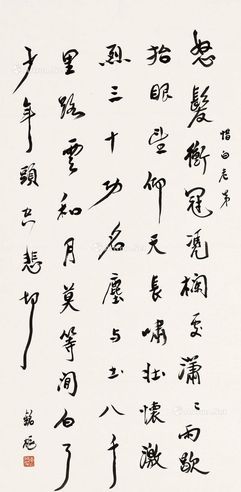 惜白老弟
怒髮衝冠凴欄處瀟〻雨歇
抬眼望仰天長嘯壯懷激
烈三十功名塵与土八千
里路雲和月莫等閒白了
少年頭空悲切
銘樞